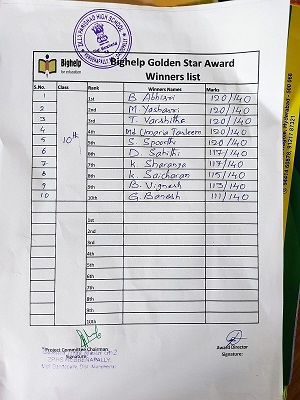 ZILLA PARISHAD HIGH SCHOOL
Bighelp
for education
Bighelp Golden Star Award
Winners list
S.No. Class Rank Winners Names Marks
1 1st B. Abhisri 120/140
2 2nd M. Yashasri 120/140
3 3rd T. Varshitha 120/140
4 10th 4th Md Umaria Tasleem 120/140
5 5th S. Spoorthi 120/140
6 6th D. Sahithi 117/140
7 7th K. Sharanya 117/140
8 8th K. Saicharan 115/140
9 9th B. Vignesh 113/140
10 10th G. Banesh 111/140
1st
2nd
3rd
4th
5th
6th
7th
8th
9th
10th
Project Committee Chairman
Signature:
Award Director
Signature: